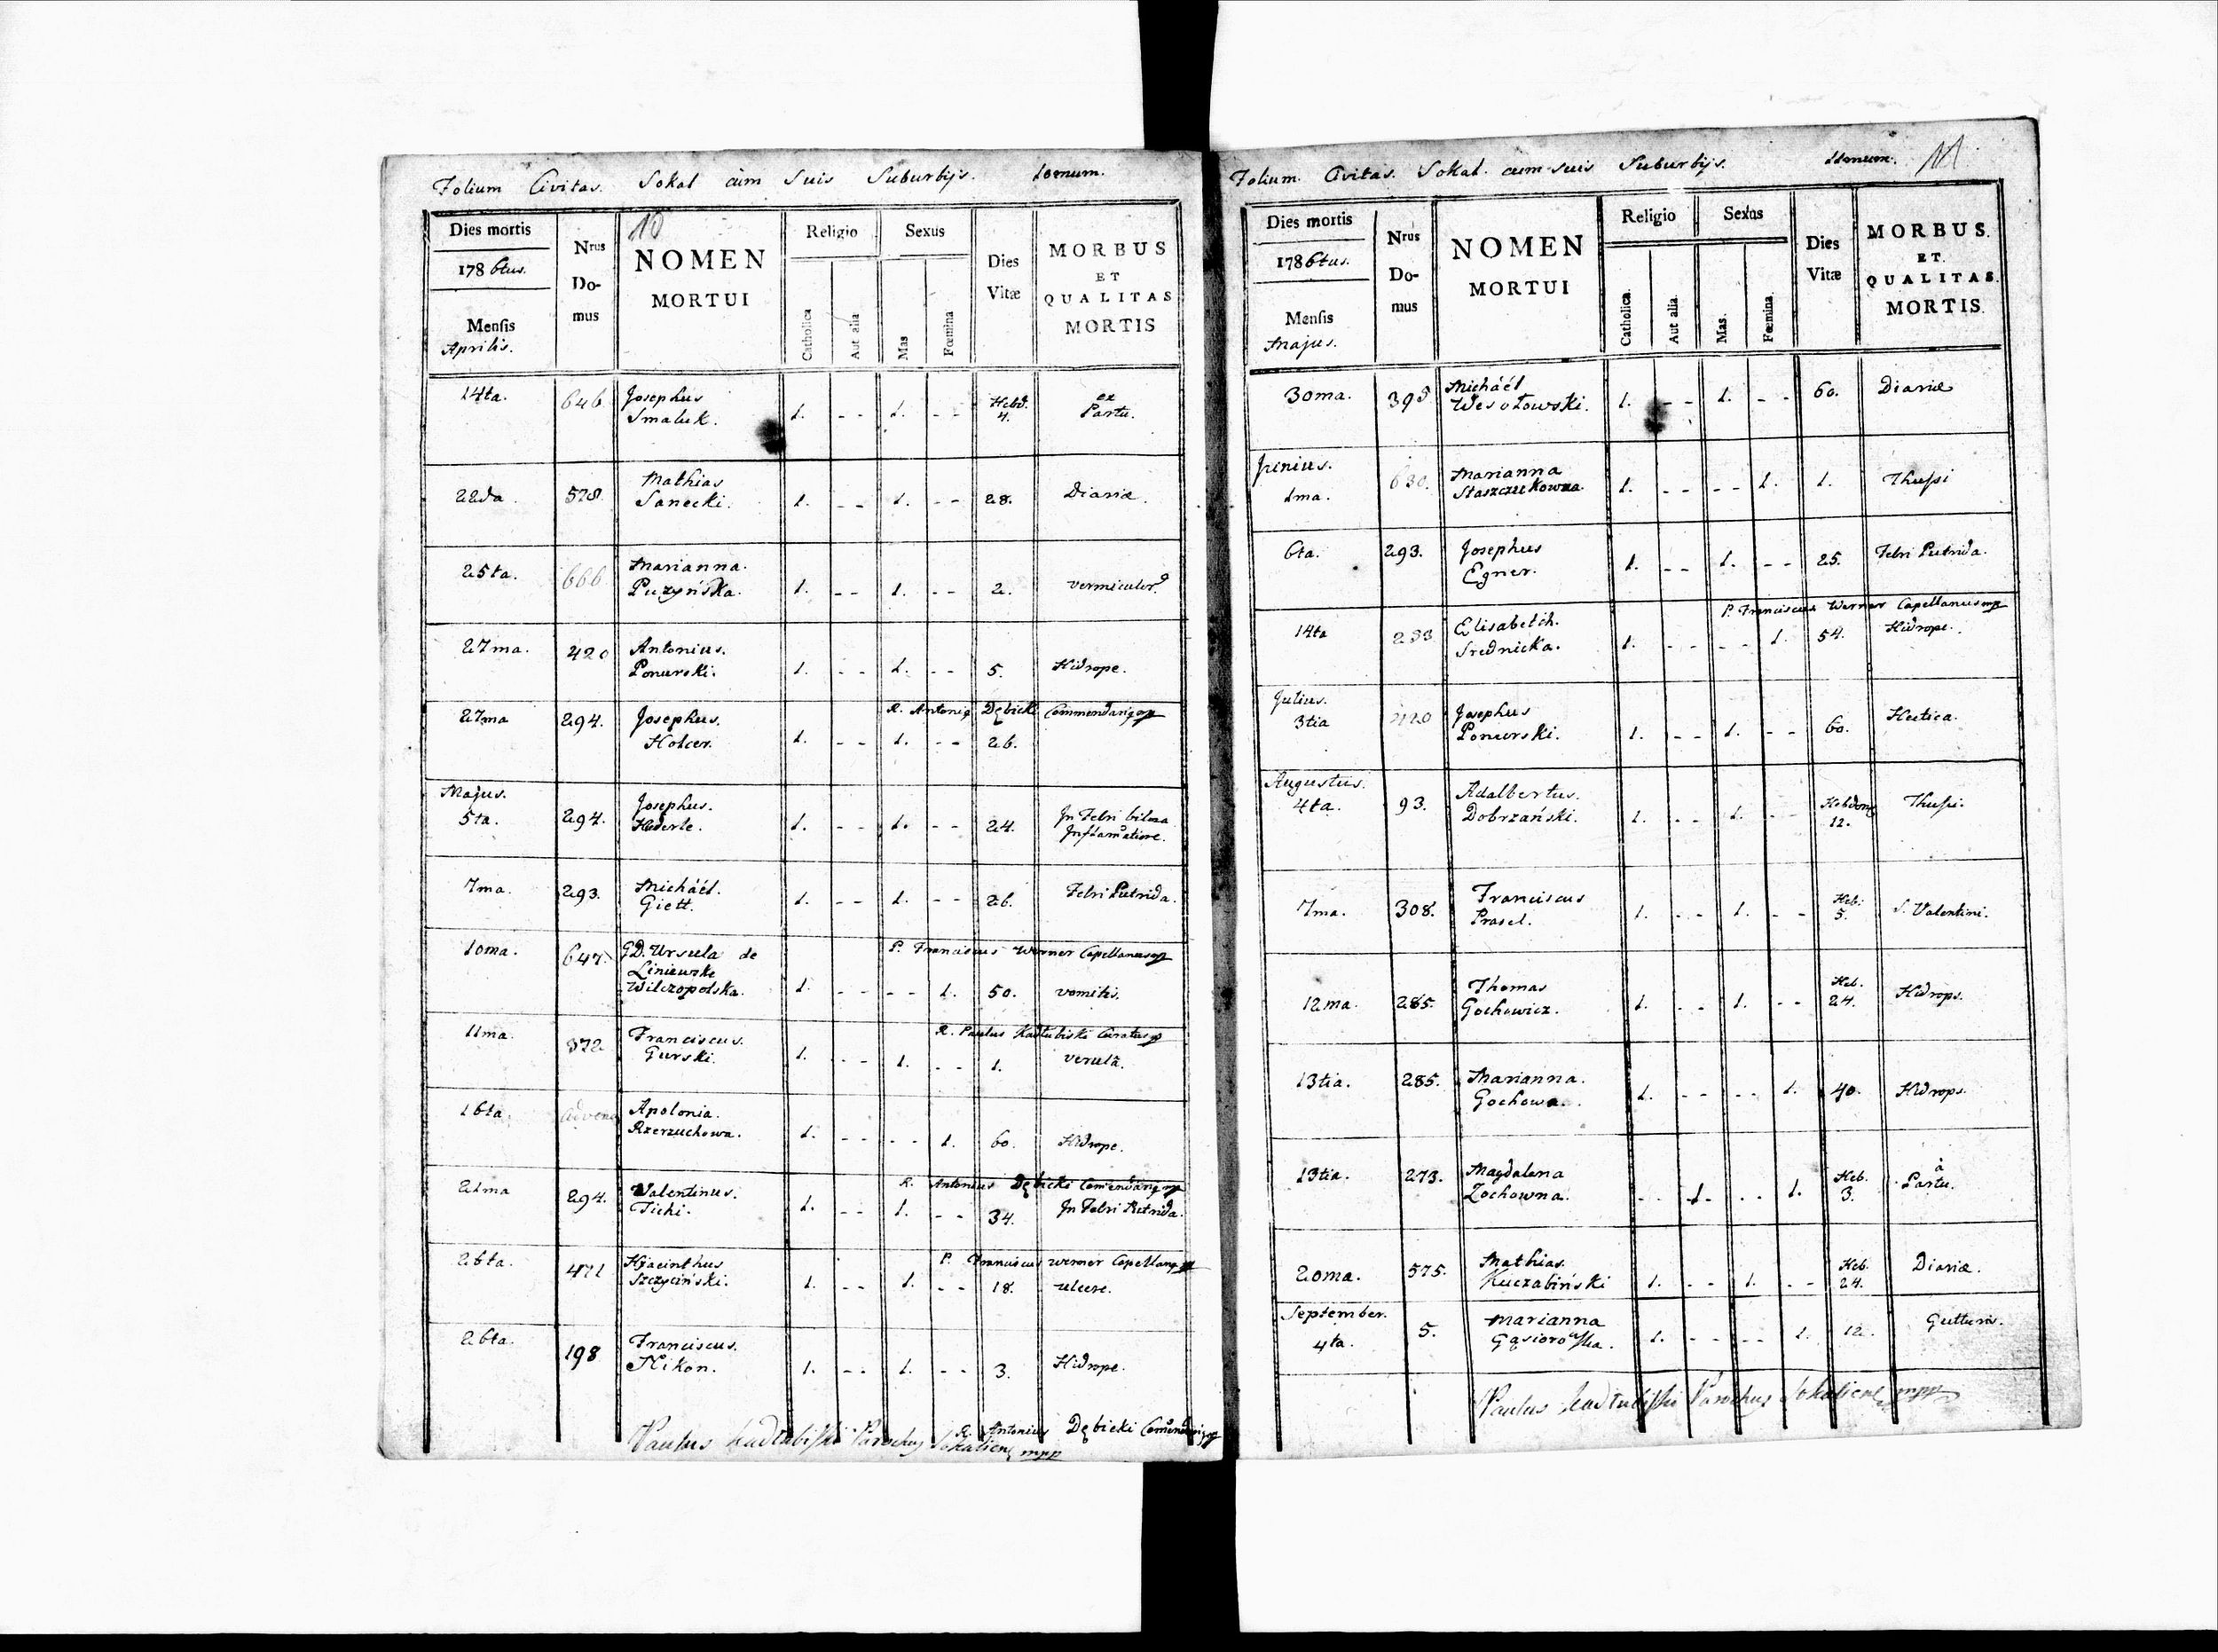 Folium Civitas. Sokal cum Suis Suburbijs. 10mum.
10
Dies mortis
1786tus.
Mensis
Aprilis.
Nrus
Do-
mus
NOMEN
MORTUI
Religio
Catholica
Aut alia
Sexus
Mas
Fœmina
Dies
Vitæ
MORBUS
ET
QUALITAS
MORTIS
14ta. 646 Josephus Smaluk. 1. - - 1. - - Hebd. 4. ex Partu.
22da. 578. Mathias Sanecki. 1. - - 1. - - 28. Diariæ.
25ta. 666 Marianna. Puzyńska. 1. - - 1. - - 2. vermiculor
27ma. 420 Antonius. Ponurski. 1. - - 1. - - 5. Hidrope.
R. Dębicki
27ma 294. Josephus. Holcer. 1. - - 1. - - 26.
Majus.
5ta. 294. Josephus. Hederle. 1. - - 1. - - 24. In Febri
7ma. 293. Micháél. Giett. 1. - - 1. - - 26. Febri Putrida.
P. Franciscus Werner Capellanus mp
10ma. 647. GD. Ursula de Liniewske Wilczopolska. 1. - - - - 1. 50. vomitis.
R. Paulus Kadłubiski Curatus mp
11ma. 372 Franciscus. Gurski. 1. - - 1. - - 1.
16ta. advena Apolonia. Rzerzuchowa. 1. - - - - 1. 60. Hidrope.
R. Antonius Dębicki
21ma 294. Valentinus. Tichi. 1. - - 1. - - 34. In Febri Putrida.
P. Franciscus Werner
26ta. 471 Hjacinthus Szczyciński. 1. - - 1. - - 18. ulcere.
26ta. 198 Franciscus. Nikon. 1. - - 1. - - 3. Hidrope.
R. Antonius Dębicki
Paulus Kadłubiski Parochus mpp
Folium. Civitas. Sokal. cum suis Suburbijs. 11mum. 11
Dies mortis
1786tus.
Mensis
Majus.
Nrus
Do-
mus
NOMEN
MORTUI
Religio
Catholica.
Aut alia.
Sexus
Mas.
Fœmina.
Dies
Vitæ
MORBUS.
ET.
QUALITAS.
MORTIS.
30ma. 395 Micháél Wesołowski. 1. - - 1. - - 60. Diariæ
Junius.
1ma. 630. Marianna Staszczukowna. 1. - - - - 1. 1. Thussi
6ta. 293. Josephus Egner. 1. - - 1. - - 25. Febri Putrida.
P. Franciscus Werner Capellanus mp
14ta 233 Elisabetch. Srednicka. 1. - - - - 1. 54. Hidrope.
Julius.
3tia 420 Josephus Ponurski. 1. - - 1. - - 60. Hectica.
Augustus.
4ta. 93. Adalbertus. Dobrzański. 1. - - 1. - - 12. Thussi.
7ma. 308. Franciscus Prasel. 1. - - 1. - - Heb: 5. S. Valentini.
12ma. 285. Thomas Gochowicz. 1. - - 1. - - Heb. 24. Hidrops.
13tia. 285. Marianna. Gochowa. 1. - - - - 1. 40. Hidrops.
13tia. 273. Magdalena Zochowna. - - 1. - - 1. Heb. 3. à Partu.
20ma. 575. Mathias. Kuczabiński 1. - - 1. - - Heb. 24. Diariæ.
September.
4ta. 5. Marianna Gąsiorowska. 1. - - - - 1. 12. Gutturis.
Paulus Kadłubiski Parochus mpp